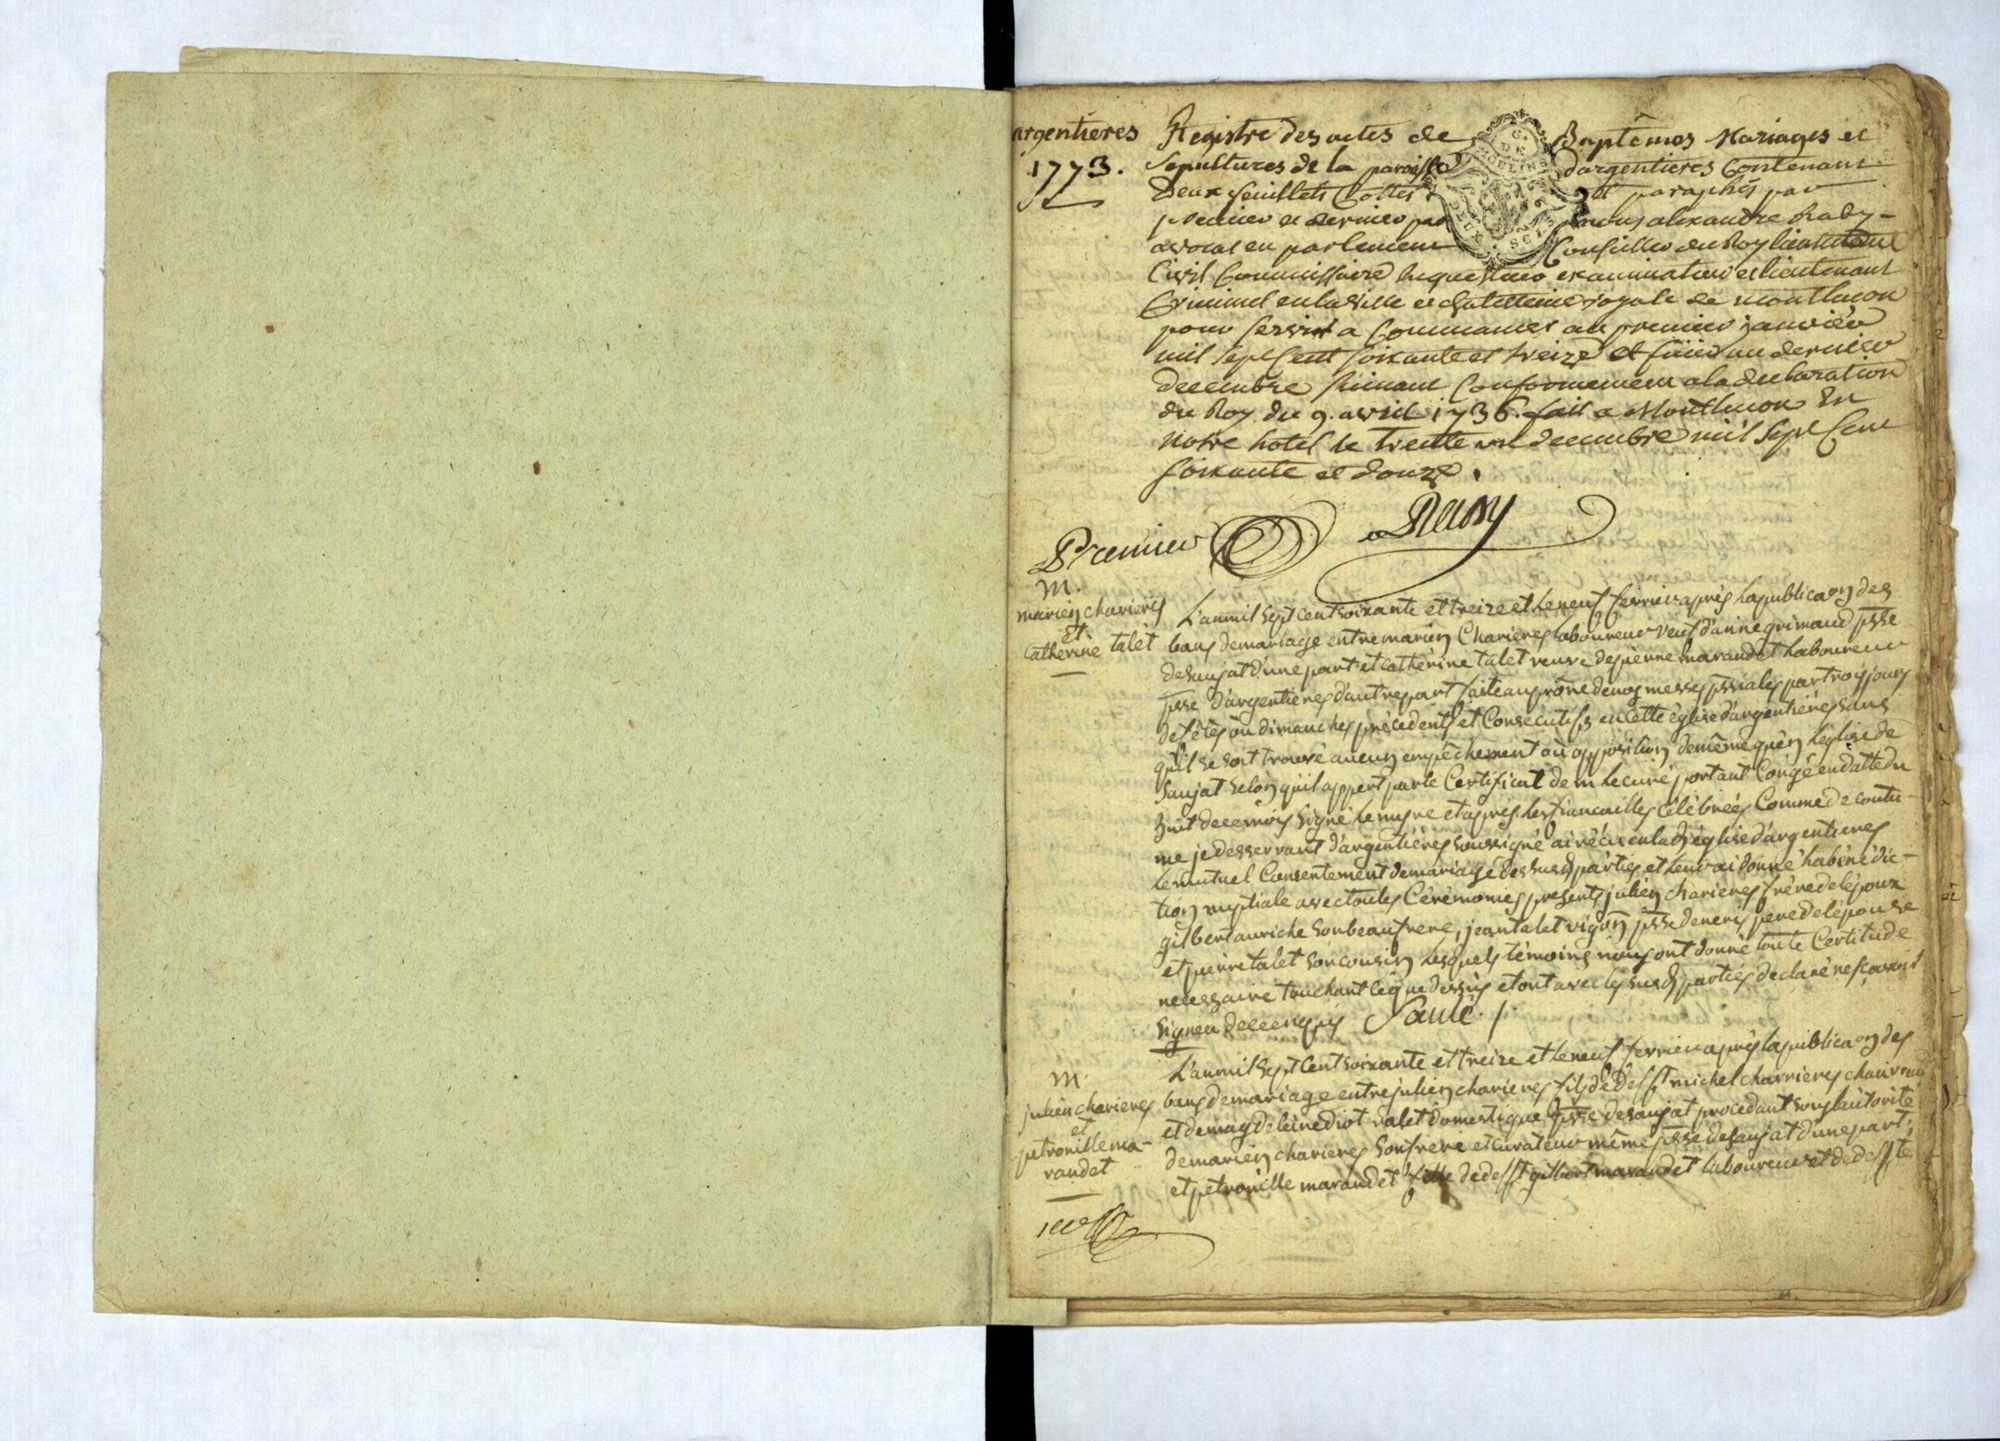 argentieres
1773.
Registre des actes de Baptêmes Mariages et
Sepultures de la paroisse dargentieres Contenant
Deux feuillets Cottes et paraphés par
premier et dernier par nous alexandre Rady
avocat en parlement Conseiller du Roy lieutenant
Civil Commissaire enquesteur examinateur et lieutenant
Criminel en la ville et chatellenie royale de montlucon
pour servir a Commancer au premier janvier
mil sept Cent soixante et treize et finir au dernier
decembre suivant Conformement a la declaration
du Roy du 9. avril 1736. fait a Montlucon En
notre hotel le trente un decembre mil sept Cent
soixante et douze.
Rady
Premier
M.
marien charieres
et
catherine talet
L'an mil sept cent soixante et treize et le neuf fevrier après la publicaõn des
bans de mariage entre marien Charieres laboureur veuf d'anne grimaud psse
de saujat d'une part et catherine talet veuve de pierre marandet laboureur
psse d'argentieres d'autre part faite au prône de nos messes pssiales par trois jours
de fêtes ou dimanches précedents et Consécutifs en cette église d'argentiéres sans
qu'il se soit trouvé aucun empêchement ou opposition de même qu'en l'église de
saujat selon qu'il appert par le Certificat de m le curé portant Congé en datte du
huit de ce mois signé et après les fiancailles célébrées Comme de coutu-
me je desservant d'argentiéres soussigné ai réçu en lad église d'argentieres
le mutuel Consentement de mariage des susd parties et leur ai donné la bénédic-
tion nuptiale avec toutes Cérémonies presents julien charieres frére de l'époux
gilbert auriche son beaufrere, jean talet vigon psse de neris pere de l'épouse
et pierre talet son cousin lesquels témoins nous ont donné toute Certitude
necessaire touchant ce que dessus et ont avec les susd parties declaré ne scavoir
signer de ce enquis Saulé
M
julien charieres
et
petronille ma-
randet
L'an mil sept cent soixante et treize et le neuf fevrier après la publicaõn des
bans de mariage entre julien charieres fils de defft michel charrieres
et de magdeleine diot valet domestique psse de saujat procedant sous l'autorité
de marien charieres son frere et curateur même psse de saujat d'une part,
et petronille marandet fille de defft gilbert marandet laboureur et de deffte